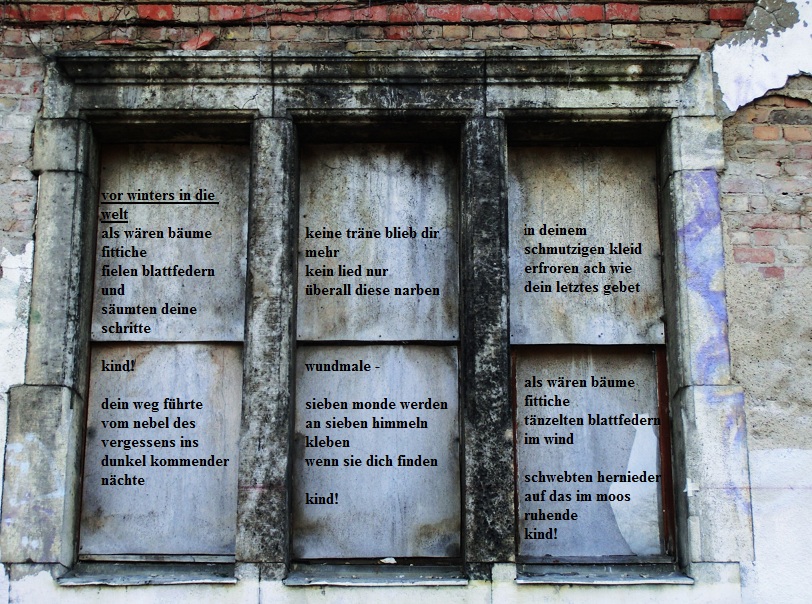 vor winters in die
welt
als wären bäume
fittiche
fielen blattfedern
und
säumten deine
schritte
kind!
dein weg führte
vom nebel des
vergessens ins
dunkel kommender
nächte
keine träne blieb dir
mehr
kein lied nur
überall diese narben
wundmale -
sieben monde werden
an sieben himmeln
kleben
wenn sie dich finden
kind!
in deinem
schmutzigen kleid
erfroren ach wie
dein letztes gebet
als wären bäume
fittiche
tänzelten blattfedern
im wind
schwebten hernieder
auf das im moos
ruhende
kind!